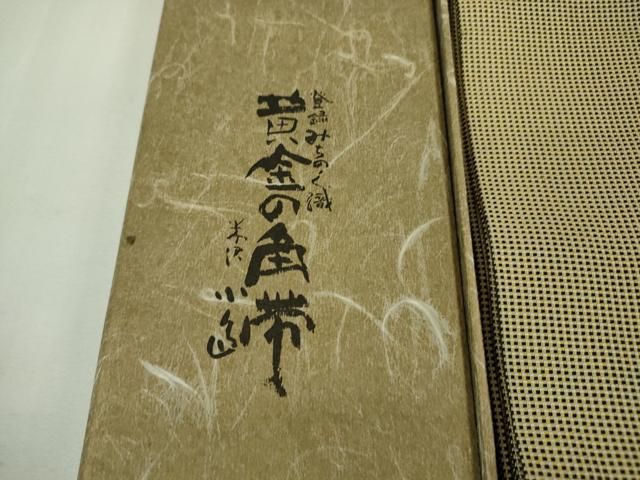 登録みちのく織
黄金の角帯
米沢
小嶋